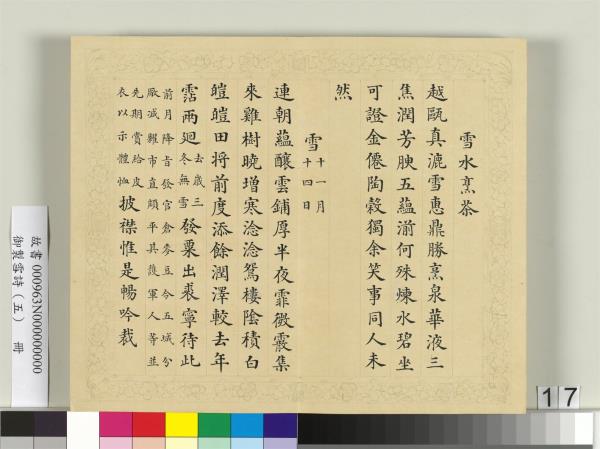 雪水烹茶
越甌真漉雪惠鼎勝烹泉華液三
焦潤芳腴五蘊湔何殊煉水碧坐
可證金僊陶穀獨余笑事同人未
然
雪十一月十四日
連朝蘊釀雲鋪厚半夜霏微霰集
來雞樹曉增寒淰淰鴛樓陰積白
皚皚田将前度添餘潤澤較去年
霑兩廻去歳三冬無雪發粟出裘寧待此
前月降㫖發官倉麥豆令五城分
厰减糶市直頗平其護軍人等並
先期賞給皮
衣以示體恤披襟惟是暢吟裁
故書 000963N000000000
御製雪詩（五） 冊
17